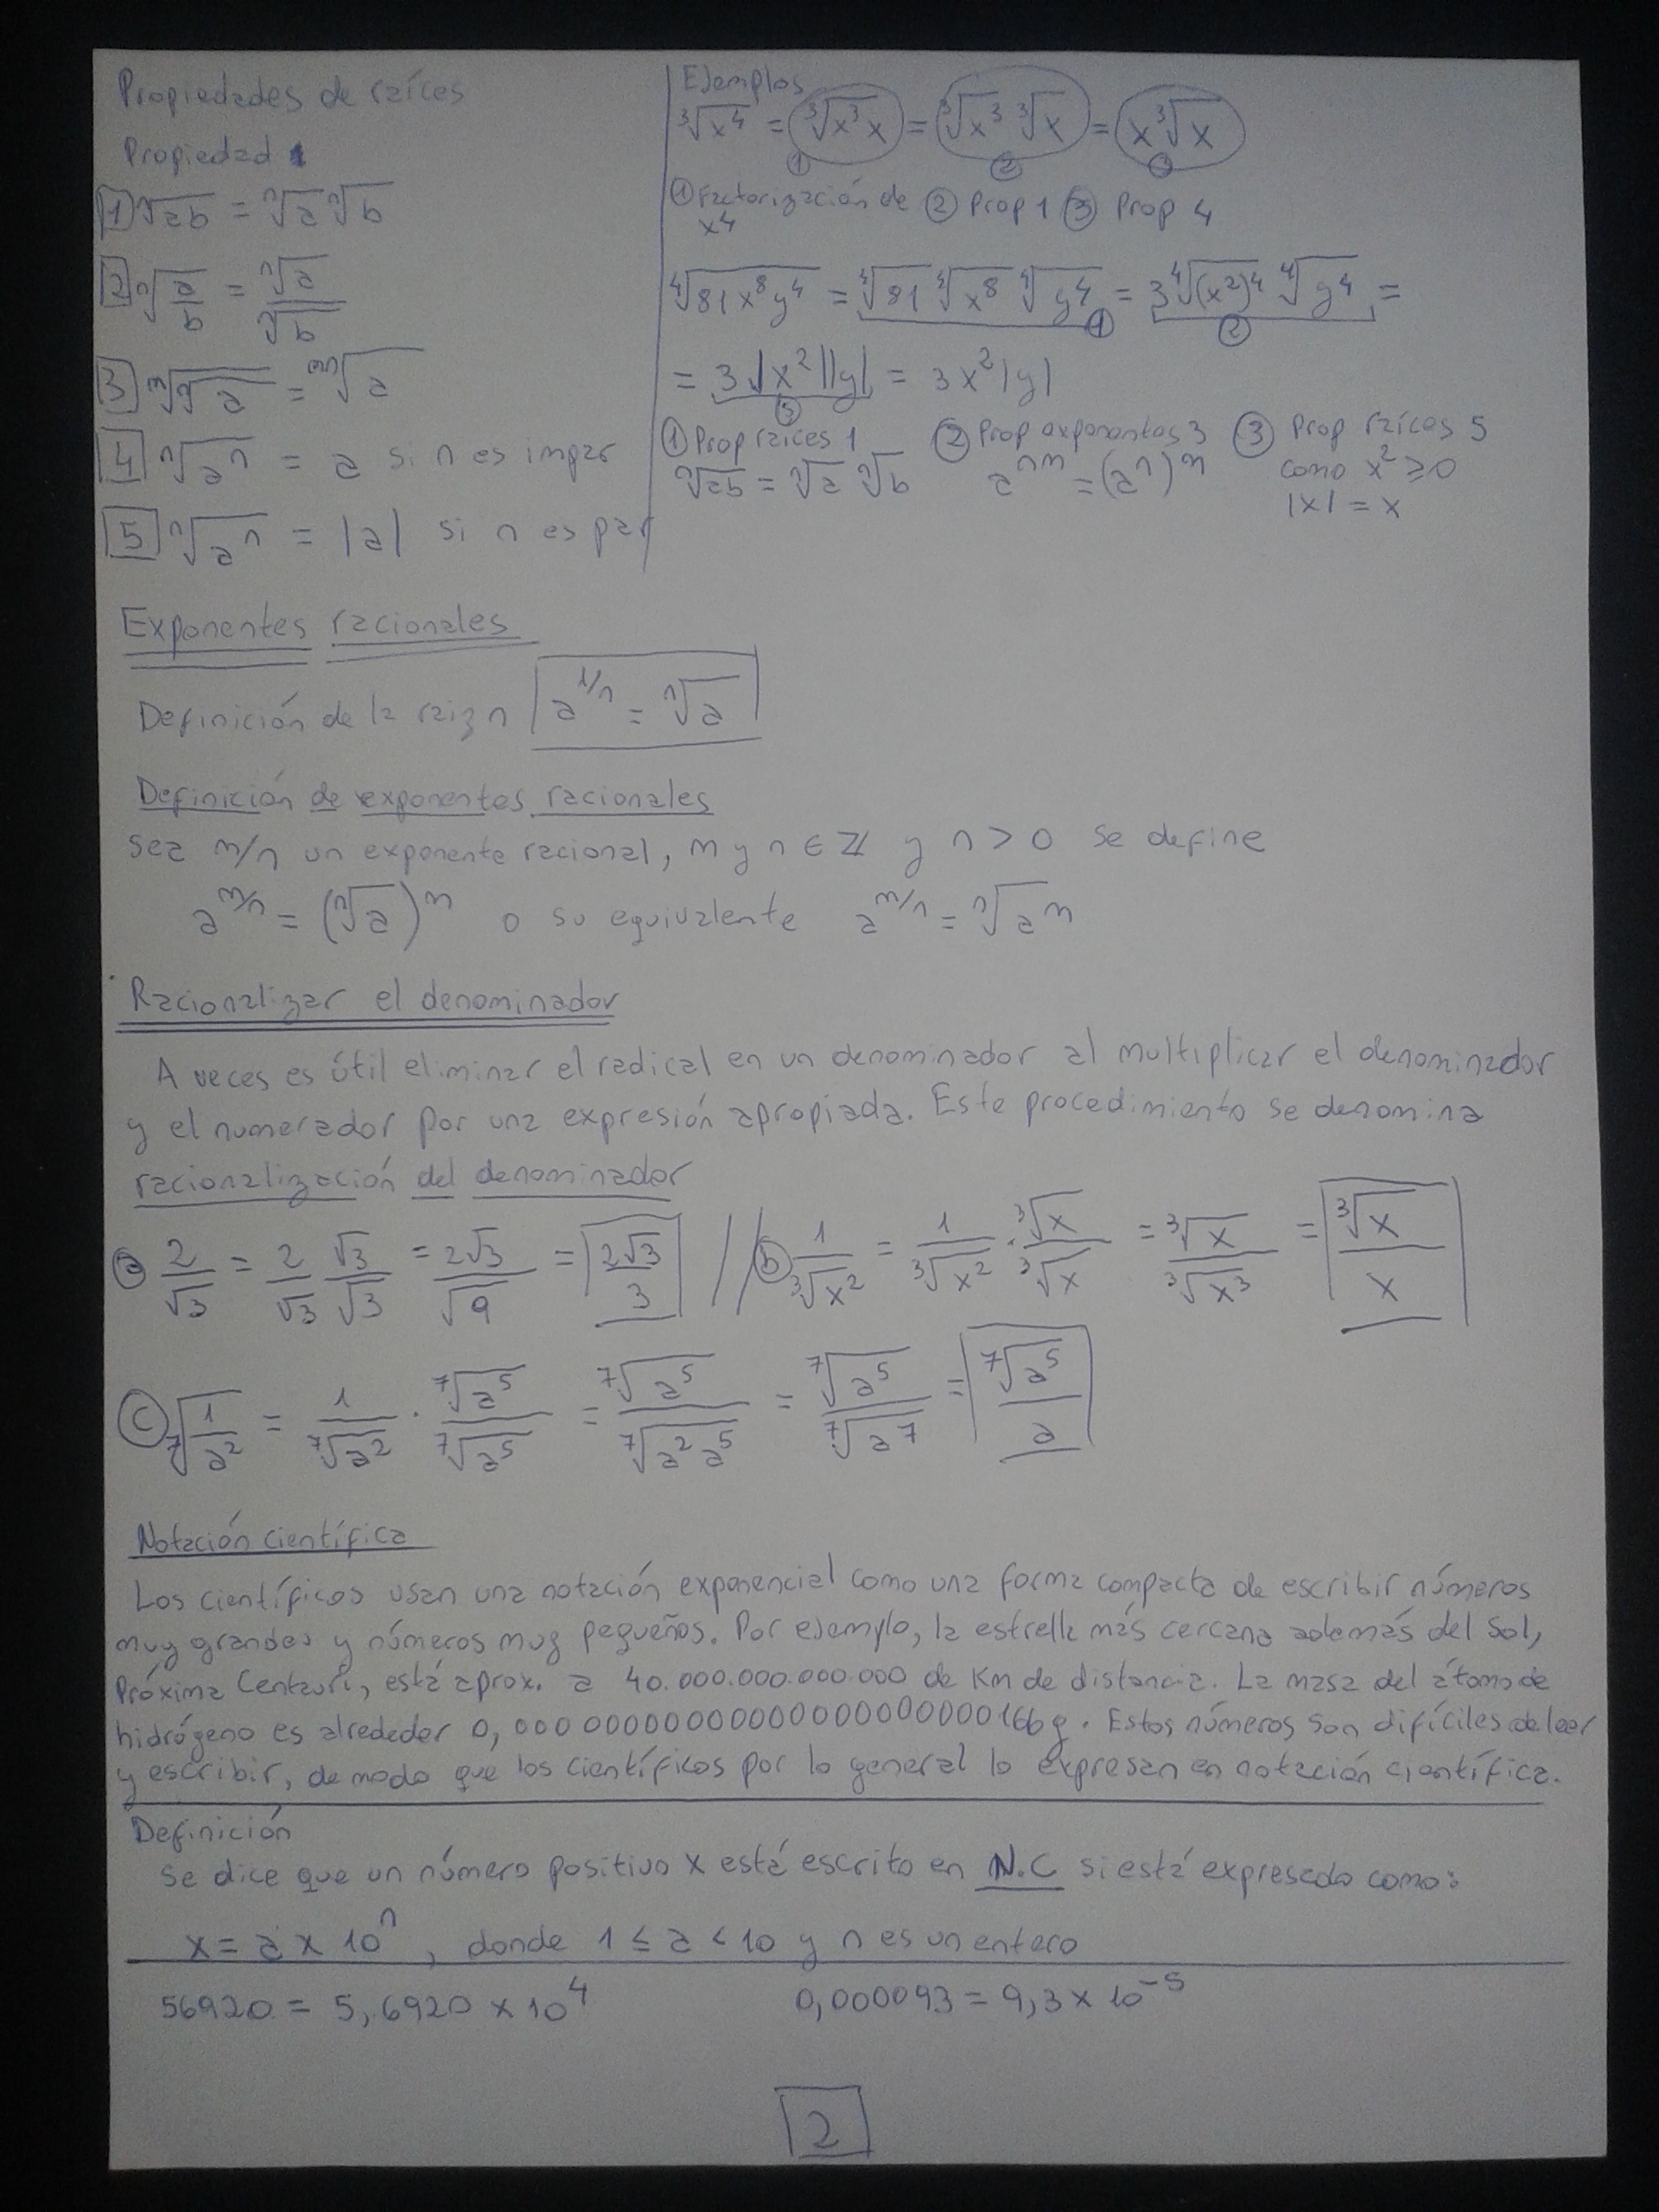 Propiedades de raíces
Propiedad
1 ⁿ√ab = ⁿ√a ⁿ√b
2 ⁿ√(a/b) = ⁿ√a / ⁿ√b
3 ᵐ√ⁿ√a = ᵐⁿ√a
4 ⁿ√aⁿ = a si n es impar
5 ⁿ√aⁿ = |a| si n es par
Ejemplos
³√x⁴ = ³√x³x = ³√x³ ³√x = x ³√x
① ② ③
① Factorización de ② Prop 1 ③ Prop 4
x⁴
⁴√81x⁸y⁴ = ⁴√81 ⁴√x⁸ ⁴√y⁴ = 3 ⁴√(x²)⁴ ⁴√y⁴ =
① ②
= 3|x²||y| = 3x²|y|
③
① Prop raíces 1 ② Prop exponentes 3 ③ Prop raíces 5
ⁿ√ab = ⁿ√a ⁿ√b aⁿᵐ = (aⁿ)ᵐ como x² ≥ 0
|x| = x
Exponentes racionales
Definición de la raiz n a^1/n = ⁿ√a
Definición de exponentes racionales
Sea m/n un exponente racional, m y n ∈ ℤ y n > 0 se define
a^m/n = (ⁿ√a)ᵐ o su equivalente a^m/n = ⁿ√aᵐ
Racionalizar el denominador
A veces es útil eliminar el radical en un denominador al multiplicar el denominador
y el numerador por una expresión apropiada. Este procedimiento se denomina
racionalización del denominador
ⓐ 2/√3 = 2/√3 √3/√3 = 2√3/√9 = 2√3/3 // ⓑ 1/³√x² = 1/³√x² · ³√x/³√x = ³√x/³√x³ = ³√x/x
ⓒ ⁷√(1/a²) = 1/⁷√a² · ⁷√a⁵/⁷√a⁵ = ⁷√a⁵/⁷√a²a⁵ = ⁷√a⁵/⁷√a⁷ = ⁷√a⁵/a
Notación científica
Los científicos usan una notación exponencial como una forma compacta de escribir números
muy grandes y números muy pequeños. Por ejemplo, la estrella más cercana además del Sol,
Próxima Centauri, está aprox. a 40.000.000.000.000 de Km de distancia. La masa del átomo de
hidrógeno es alrededor 0,00000000000000000000000166g. Estos números son difíciles de leer
y escribir, de modo que los científicos por lo general lo expresan en notación científica.
Definición
Se dice que un número positivo x está escrito en N.C si está expresado como:
x = a x 10ⁿ, donde 1 ≤ a < 10 y n es un entero
56920 = 5,6920 x 10⁴ 0,000093 = 9,3 x 10⁻⁵
2